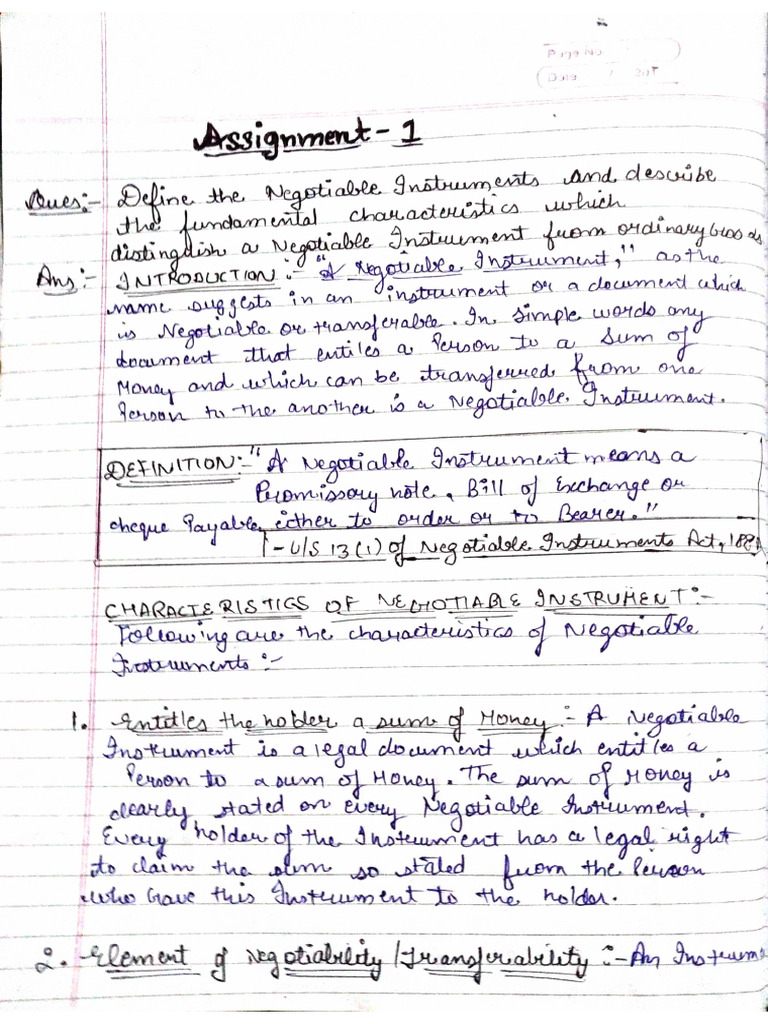 Page No.
Date / 201
Assignment - 1
Ques:- Define the Negotiable Instruments and describe
the fundamental characteristics which
distinguish a Negotiable Instrument from ordinary goods.
Ans:- INTRODUCTION :- "A Negotiable Instrument," as the
name suggests in an instrument or a document which
is Negotiable or transferable. In simple words any
document that entiles a Person to a Sum of
Money and which can be transferred from one
Person to the another is a Negotiable Instrument.
DEFINITION:- "A Negotiable Instrument means a
Promissory note, Bill of Exchange or
cheque Payable either to order or to Bearer."
- U/S 13(1) of Negotiable Instruments Act, 1881
CHARACTERISTICS OF NEGOTIABLE INSTRUMENT:-
Following are the characteristics of Negotiable
Instruments :-
1. Entitles the holder a sum of Money :- A Negotiable
Instrument is a legal document which entitles a
Person to a sum of Money. The sum of Money is
clearly stated on every Negotiable Instrument.
Every holder of the Instrument has a legal right
to claim the sum so stated from the Person
who Gave this Instrument to the holder.
2. Element of Negotiability / Transferability :- An Instrum